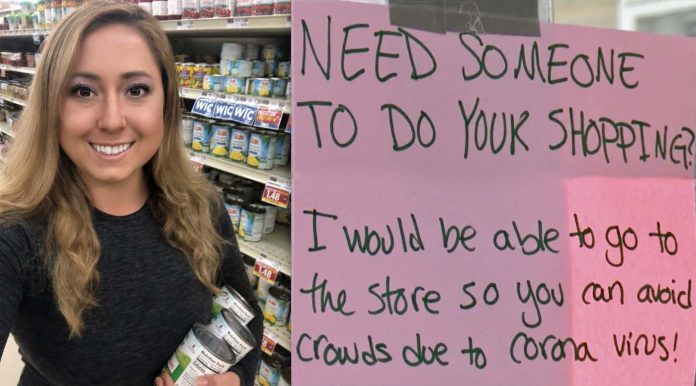 WIC WIC WIC
1.48
1.48
NEED SOMEONE
TO DO YOUR SHOPPING?
I would be able to go to
the store so you can avoid
crowds due to corona virus!